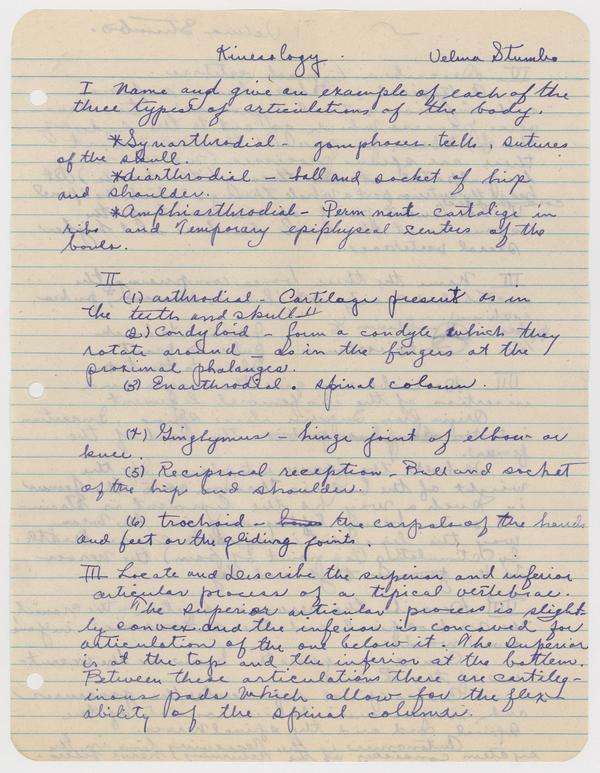 Kinesology. Velma Stumbo
I Name and give an example of each of the
three types of articulations of the body.
*Synarthrodial - gomphoses. teeth, sutures
of the skull.
*diarthrodial - ball and socket of hip
and shoulder.
*Amphiarthrodial - Permnant cartalige in
ribs and Temporary epiphyseal centers of the
bones.
II
(1) arthrodial - Cartilage present as in
the teeth and skull
(2) Condyloid - form a condyle which they
rotate around - as in the fingers at the
proximal phalanges.
(3) Enarthrodial. spinal column.
(4) Ginglymus - hinge joint of elbow or
knee.
(5) Reciprocal reception - Ball and socket
of the hip and shoulder.
(6) trochoid - the carpals of the hands
and feet or the gliding joints.
III Locate and describe the superior and inferior
articular process of a tipical vertebrae.
The superior articular process is slight-
ly convex and the inferior is concaved for
articulation of the one below it. The superior
is at the top and the inferior at the bottom.
Between these articulations there are cartileg-
inous pads which allow for the flex-
ability of the spinal column.